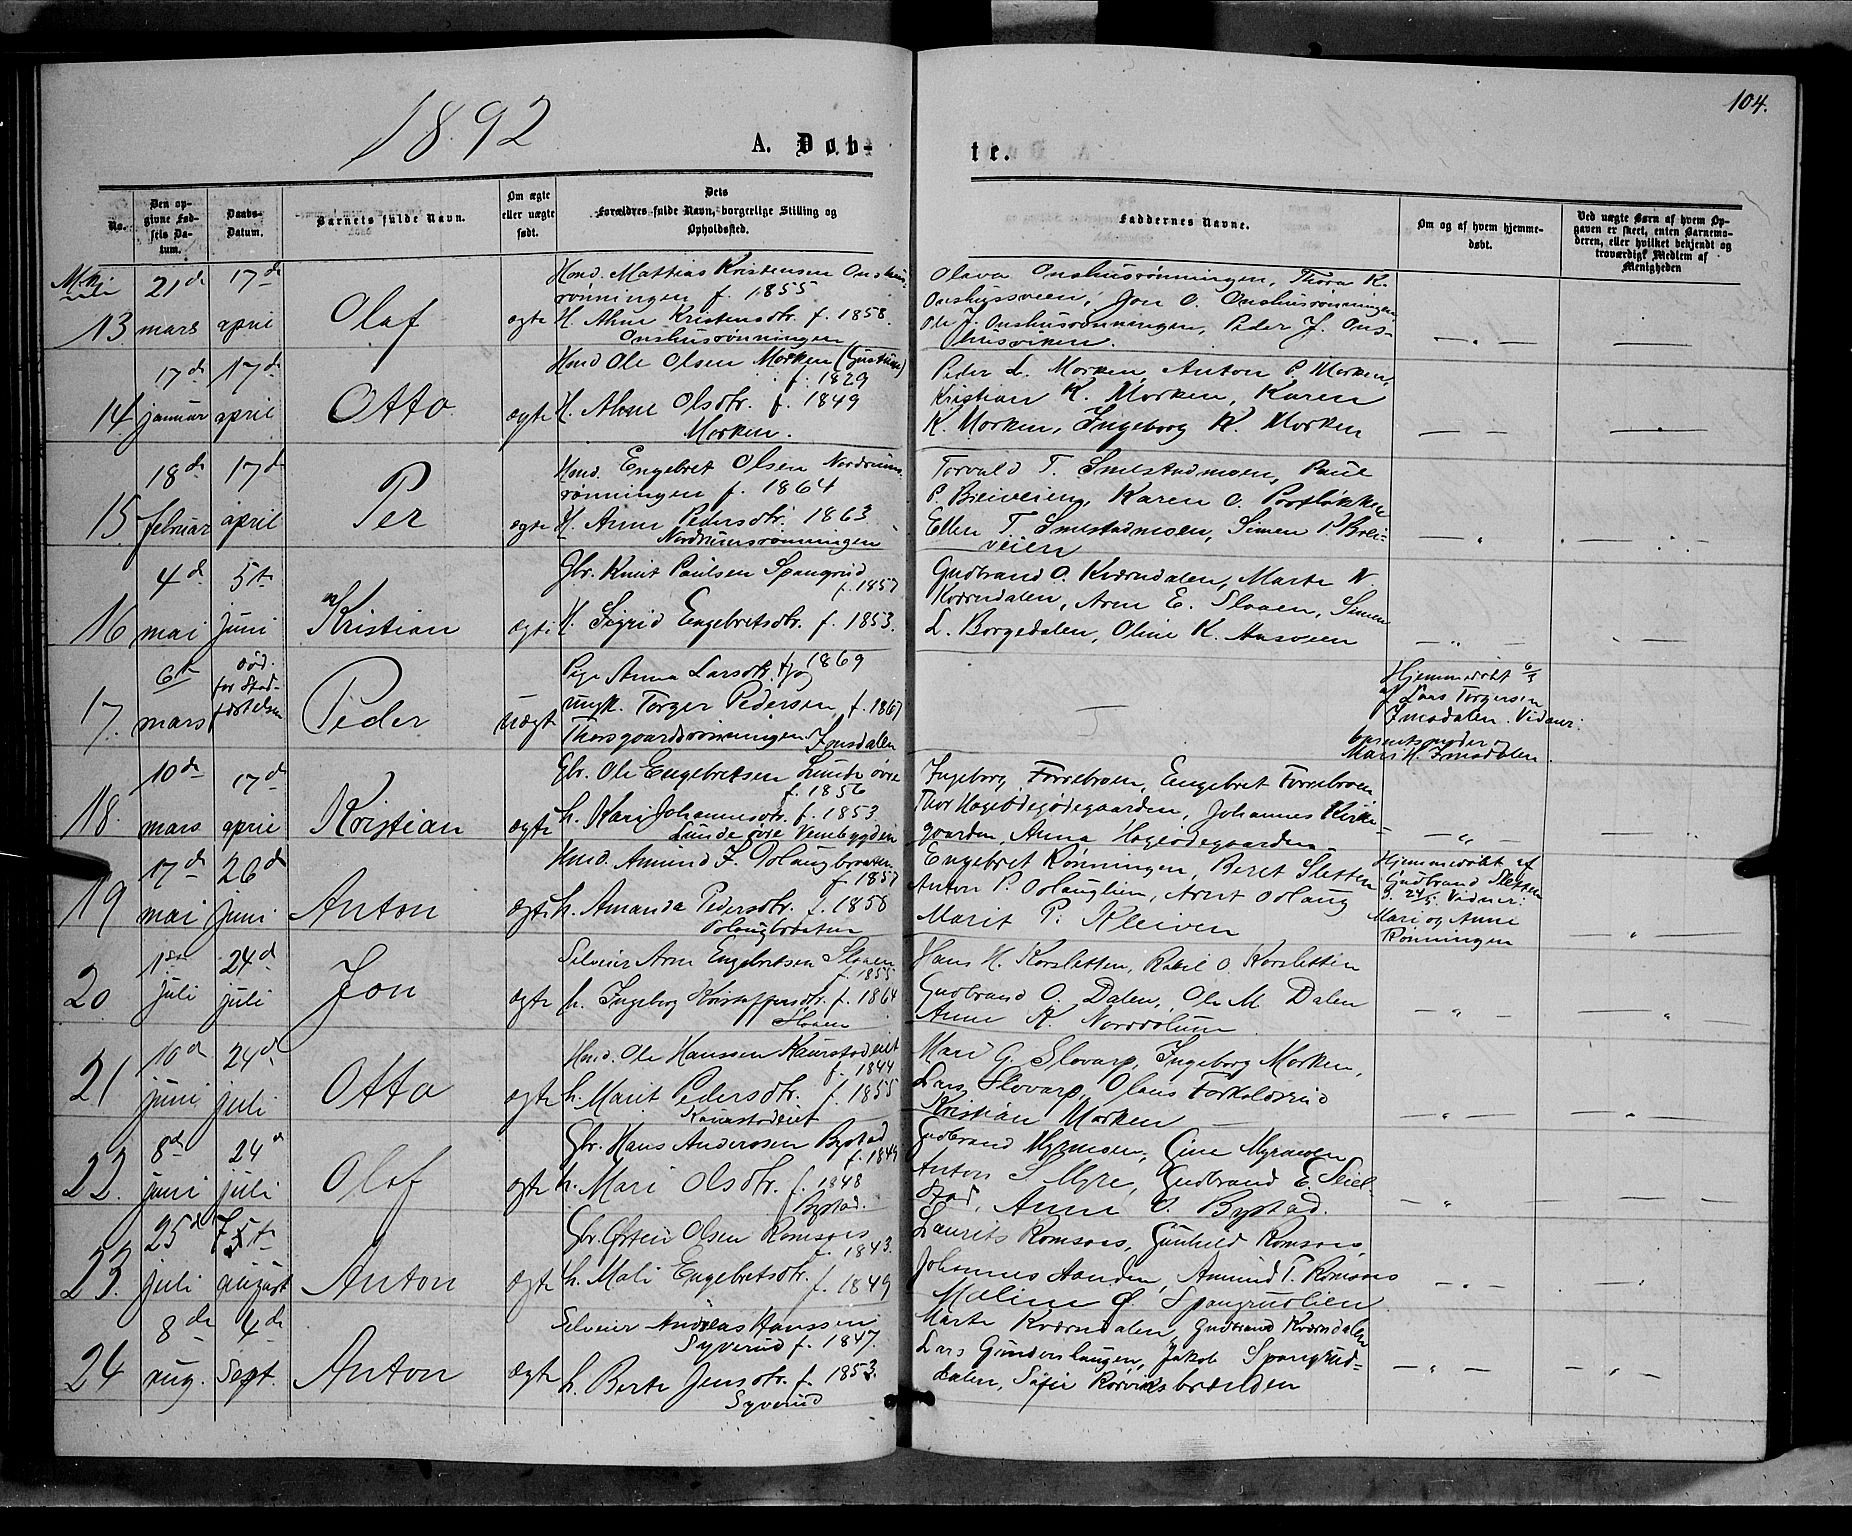 104.
1892
A. Døb-
te.
No.
Den op-
givne Fød-
sels Da-
tum.
Daabs-
Datum.
Barnets fulde Navn.
Om ægte
eller uægte
født.
Dets
Forældres fulde Navn, borgerlige Stilling og
Opholdssted.
Faddernes Navne.
Om og af hvem hjemme-
døbt.
Ved uægte Børn af hvem Op-
gaven er skeet, enten Barnemo-
deren, eller hvilket bekjendt og
troværdigt Medlem af
Menigheden
13
21de
mars
17de
april
Olaf
ægte
Hmd. Mattias Kristensen Onshus-
rønningen f. 1855
H. Ahne Kristensdtr. f. 1858.
Onshusrønningen
Olava Onshusrønningen, Thora K.
Onshusveen, Jon O. Onshusrønningen
Ole J. Onshusrønningen, Peder J. Ons-
husviken.
14
17de
januar
17de
april
Otto
ægte
Hmd Ole Olsen Morken
f. 1829
H. Ahne Olsdtr. f. 1849
Morken.
Peder L. Morken, Anton P. Morken,
Kristian K. Morken, Karen
K. Morken, Ingeborg K. Morken
15
18de
februar
17de
april
Per
ægte
Hmd. Engebret Olsen Nordrums-
rønningen f. 1864
H. Anne Pedersdtr. 1863
Nordrumsrønningen
Torvald T. Smestadmoen, Paul
P. Breiveien, Karen O. Postløkken
Ellen T. Smestadmoen, Simen P. Brei-
veien
16
4de
mai
5te
juni
Kristian
ægte
Gbr. Knut Paulsen Spangrud
f. 1857
H. Sigrid Engebretsdtr. f. 1853.
Gudbrand O. Kværndalen, Marte N.
Kværndalen, Arne E. Sloaen, Simen
L. Borgedalen, Oline K. Aasveen
17.
6te
mars
død
før Stad-
fæstelsen
Peder
uægte
Pige Anna Larsdtr. 1869
ungk. Torger Pedersen f. 1867
Thorsgaardsrønningen Imsdalen
Hjemmedøbt 6/3
af Lars Torgersen
Imsdalen. Vidner:
barnets moder og
Mari H. Imsdalen.
18.
10de
mars
17de
april
Kristian
ægte
Gbr. Ole Engebretsen Lunde øvre
f. 1856
h. Kari Johannesdtr. f. 1853.
Lunde øvre Vembygden
Ingeborg Forrebroen, Engebret Forrebroen
Thor Hageødegaarden, Johannes Kirke-
gaarden, Anna Hageødegaarden
19
17de
mai
26de
juni
Anton
ægte
Hmd. Amund J. Odlaugbraaten
f. 1857
h. Amanda Pedersdtr. f. 1858
Engebret Rønningen, Beret Sletten
Anton P. Odlauglien, Arnt Odlaug
Marit P. Kleiven
Hjemmedøbt af
Gudbrand Sletten
d. 24/5. Vidner:
Mari og Anne
Rønningen
20
1ste
juli
24de
juli
Jon
ægte
Selveier Arne Engebretsen Sloaen
f. 1855
h. Ingeborg Kristoffersdtr. f. 1864
Sloaen
Hans H. Korsletten, Rakil O. Korsletten
Gudbrand O. Dalen, Ole M. Dalen
Anne K. Norddølum
21
10de
juni
24de
juli
Otto
ægte
Hmd. Ole Hanssen Kaurstadeiet
f. 1844
h. Marit Pedersdtr. f. 1855
Kaurstadeiet
Mari G. Slovarp, Ingeborg Morken,
Lars Slovarp, Olaus Forkalsrud
Kristian Morken
22.
8de
juni
24de
juli
Olaf
ægte
Gbr. Hans Anderssen Bystad
f. 1849
h. Mari Olsdtr. f. 1848
Bystad.
Gudbrand Myrmoen, Gine Myrmoen
Anton S Myre, Gudbrand E. Skiel-
stad, Anne O. Bystad.
23.
25de
juli
5te
august
Anton
ægte
Gbr. Østen Olsen Romsaas
f. 1843.
h. Mali Engebretsdtr. f. 1849
Laurits Romsaas, Gunhild Romsaas,
Johannes Aanden, Amund T. Romsaas
Maline Ø. Spangrudlien
24
8de
aug.
4de
Sept.
Anton
ægte
Selveier Andreas Hanssen
Syverud f. 1847.
h. Berte Jensdtr. f. 1853.
Syverud
Marte Kværndalen, Gudbrand Kværndalen
Lars Gunderslaugen, Jakob Spangrud-
dalen, Sofie Rørviksbrænden